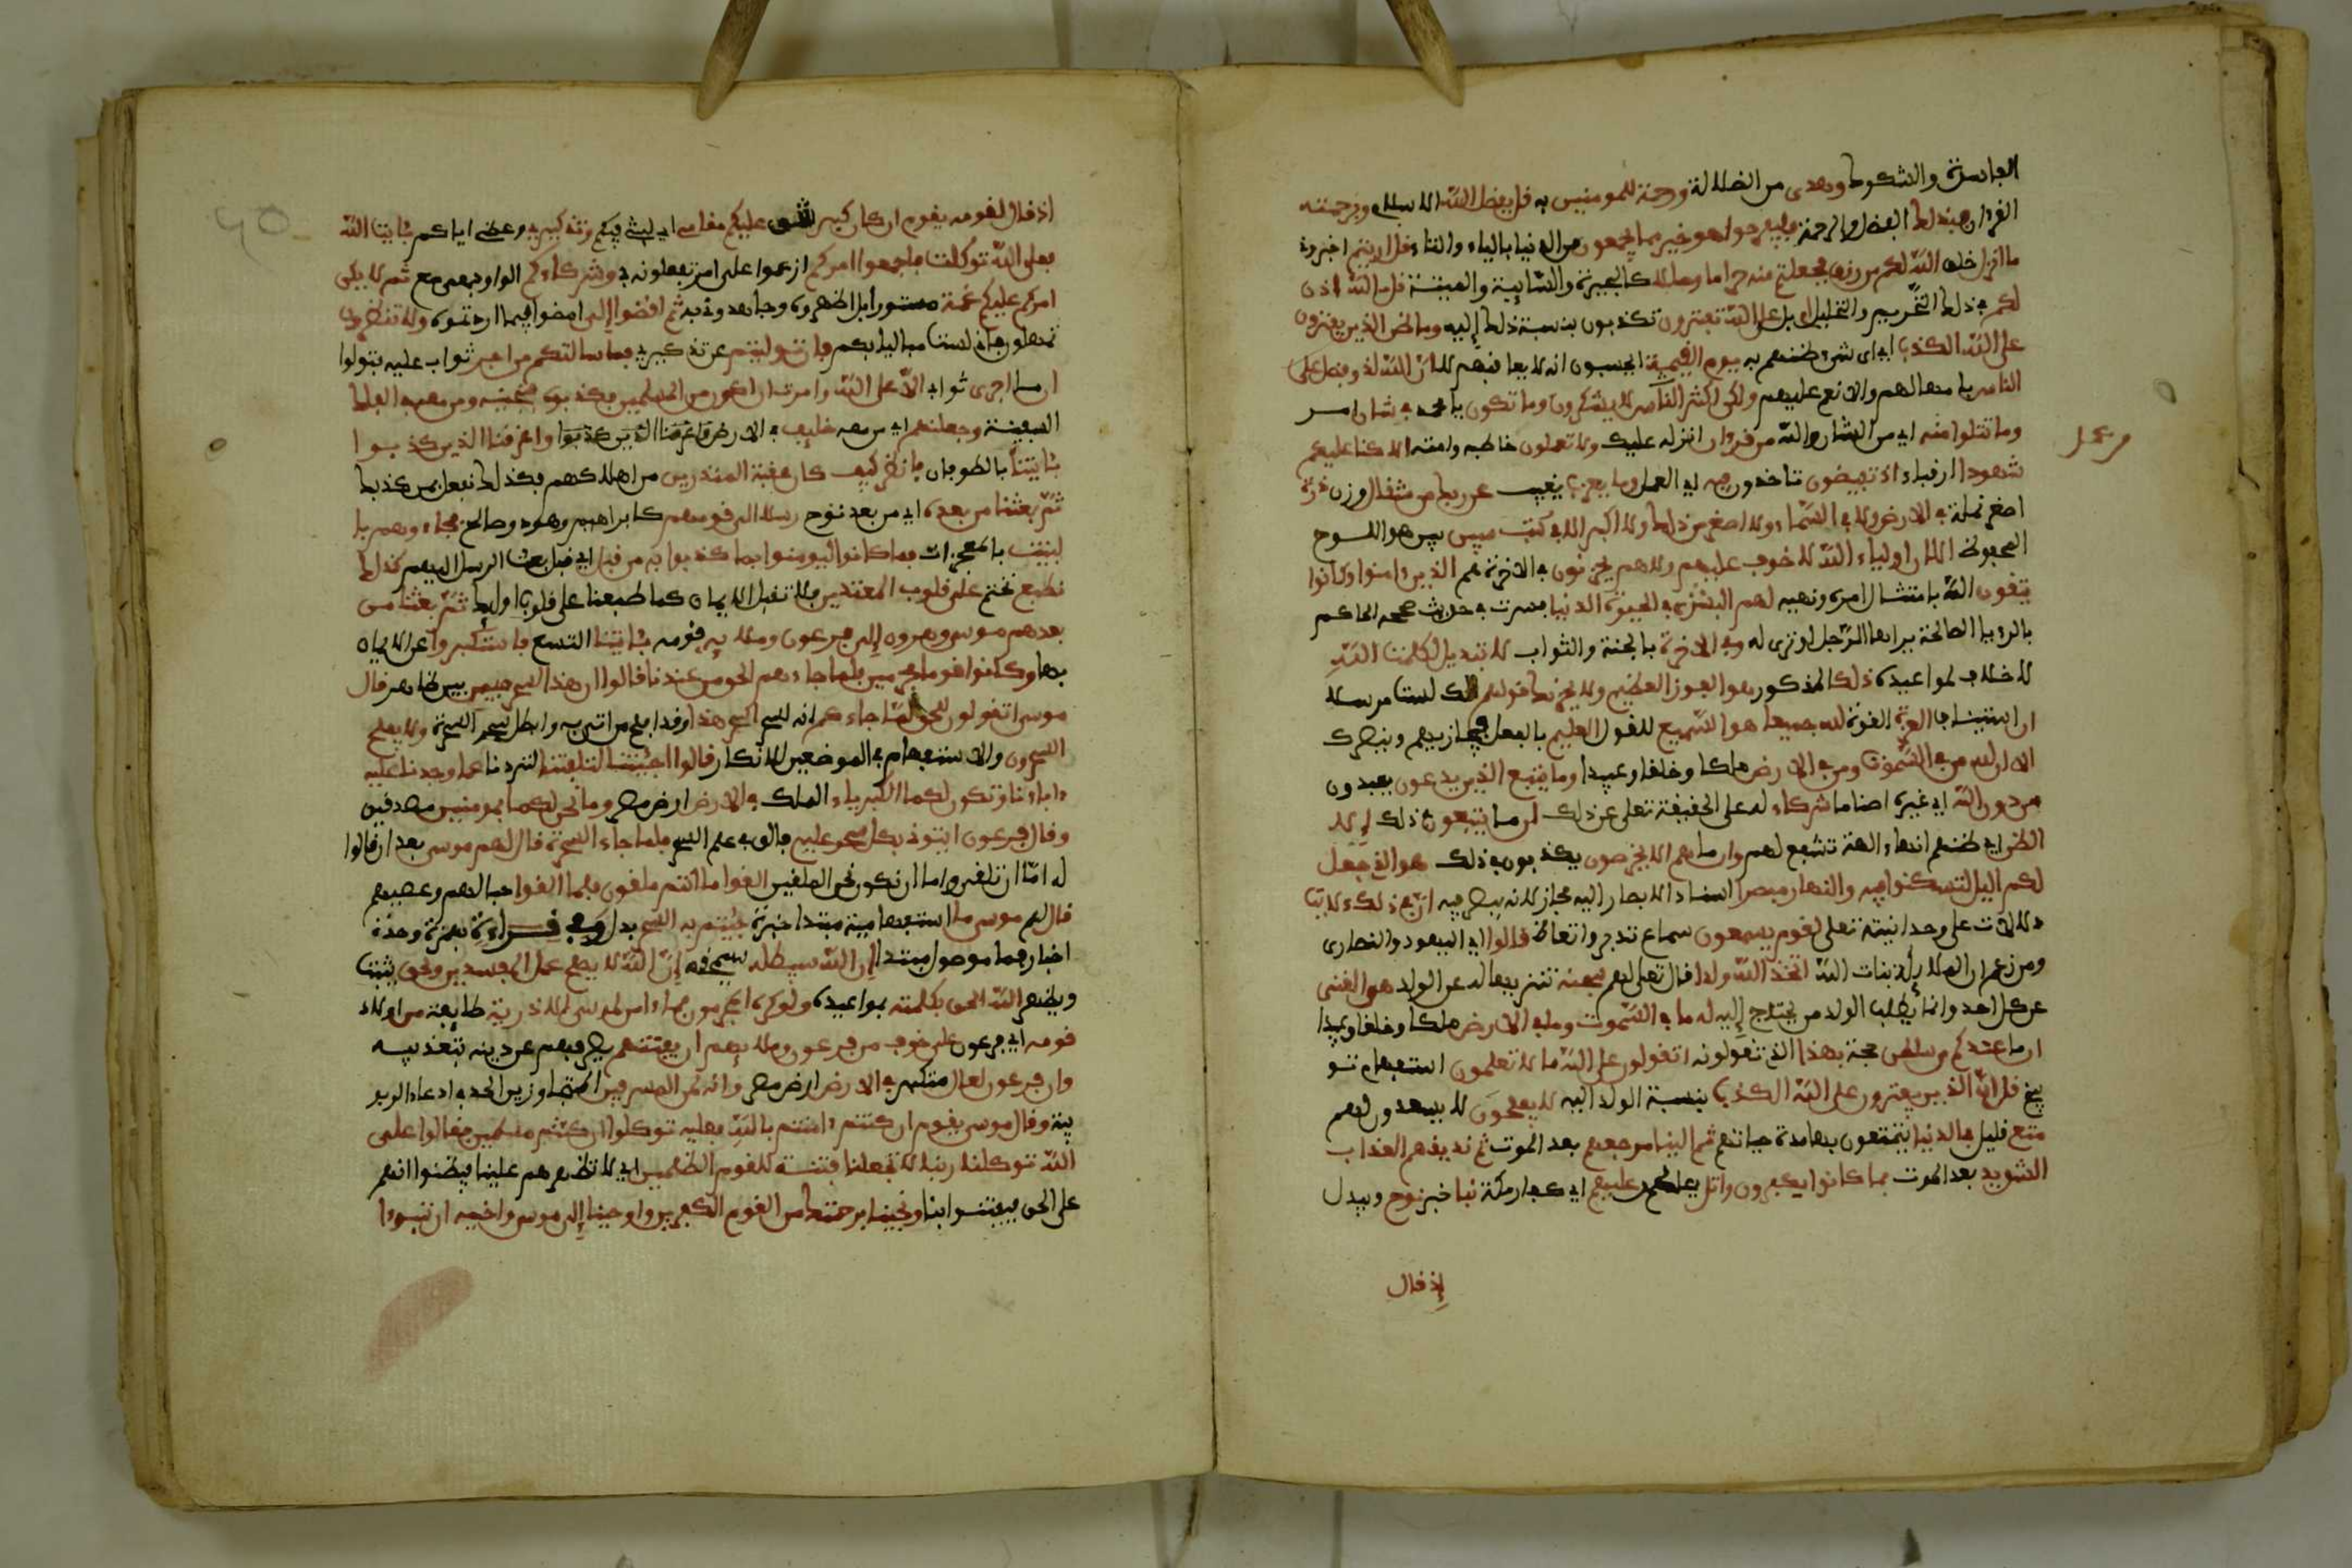 الفاسدة والشكوك وهدى من الضلالة ورحمة للمومنين به قل بفضل الله الاسلام وبرحمته
القرءان فبذلك الفضل والرحمة فليفرحوا هو خير مما يجمعون من الدنيا بالياء والتاء قل ارايتم اخبروني
ما انزل خلق الله لكم من رزق فجعلتم منه حراما وحلالا كالبحيرة والسايبة والميتة قل ءالله اذن
لكم في ذلك التحريم والتحليل ام بل على الله تفترون تكذبون بنسبة ذلك إليه وما ظن الذين يفترون
على الله الكذب اي اى شيء ظنهم به يوم القيمة ايحسبون انه لا يعاقبهم لا ان الله لذو فضل على
الناس بامهالهم والانعام عليهم ولكن اكثر الناس لا يشكرون وما تكون يا محمد في شان امر
وما تتلوا منه اي من الشان او الله من قرءان انزله عليك ولا تعملون خاطبه وامته الا كنا عليكم
من عمل
شهودا رقباء اذ تفيضون تاخذون فيه اي العمل وما يعزب يغيب عن ربك من مثقال وزن ذرة
اصغر نملة في الارض ولا في السماء ولا اصغر من ذلك ولا اكبر الا في كتب مبين بين هو اللوح
المحفوظ الا ان اولياء الله لا خوف عليهم ولا هم يحزنون في الاخرة هم الذين ءامنوا وكانوا
يتقون الله بامتثال امره ونهيه لهم البشرى في الحيوة الدنيا فسرت في حديث صححه الحاكم
بالرءيا الصالحة يراها الرجل او ترى له وفي الاخرة بالجنة والثواب لا تبديل لكلمت الله
لا خلاف لمواعيده ذلك المذكور هو الفوز العظيم ولا يحزنك قولهم لك لست مرسلا
ان استيناف العزة القوة لله جميعا هو السميع للقول العليم بالفعل فيجازيهم وينصرك
الا ان لله من في السموت ومن في الارض ملكا وخلقا وعبيدا وما يتبع الذين يدعون يعبدون
من دون الله اي غيره اصناما شركاء له على الحقيقة تعلى عن ذلك ان ما يتبعون في ذلك إلا
الظن اي ظنهم انها ءالهة تشفع لهم وان ما هم الا يخرصون يكذبون في ذلك هو الذي جعل
لكم اليل لتسكنوا فيه والنهار مبصرا اسناد الابصار اليه مجاز لانه يبصر فيه ان في ذلك لايت
دلالات على وحدانيته تعلى لقوم يسمعون سماع تدبر واتعاظ قالوا اي اليهود والنصارى
ومن زعم ان الملايكة بنات الله اتخذ الله ولدا قال تعلى لهم سبحنه تنزيها له عن الولد هو الغني
عن كل احد وانما يطلب الولد من يحتاج إليه له ما في السموت وما في الارض ملكا وخلقا وعبيدا
ان ما عندكم من سلطن حجة بهذا الذي تقولونه اتقولون على الله ما لا تعلمون استفهام تو
بيخ قل ان الذين يفترون على الله الكذب بنسبة الولد اليه لا يفلحون لا يسعدون لهم
متع قليل في الدنيا يتمتعون به مدة حياتهم ثم الينا مرجعهم بعد الموت ثم نذيقهم العذاب
الشديد بعد الموت بما كانوا يكفرون واتل يا محمد عليهم اي كفار مكة نبا خبر نوح ويبدل
إذ قال
اذ قال لقومه يقوم ان كان كبر شق عليكم مقامي اي لبثي فيكم وتذكيري وعظي اياكم بئايت الله
فعلى الله توكلت فاجمعوا امركم اعزموا على امر تفعلونه بي وشركاءكم الواو بمعنى مع ثم لا يكن
امركم عليكم غمة مستورا بل اظهروه وجاهدوني به ثم اقضوا إلي امضوا فيما اردتموه ولا تنظرون
تمهلون فاني لست مباليا بكم فان توليتم عن تذكيري فما سالتكم من اجر ثواب عليه فتولوا
ان ما اجرى ثوابي الا على الله وامرت ان اكون من المسلمين فكذبوه فنجينه ومن معه في الفلك
السفينة وجعلنهم اي من معه خليف في الارض واغرقنا الذين كذبوا واغرقنا الذين كذبوا
بئايتنا بالطوفان فانظر كيف كان عقبة المنذرين من اهلاكهم فكذلك نفعل بمن كذبك
ثم بعثنا من بعده اي من بعد نوح رسلا الى قومهم كابراهيم وهود وصالح فجاءوهم با
لبينت بالمعجزات فما كانوا ليومنوا بما كذبوا به من قبل اي قبل بعث الرسل اليهم كذلك
نطبع نختم على قلوب المعتدين فلا تقبل الايمان كما طبعنا على قلوب اوليك ثم بعثنا من
بعدهم موسى وهرون إلى فرعون وملايه قومه بئايتنا التسع فاستكبروا عن الايمان
بها وكانوا قوما مجرمين فلما جاءهم الحق من عندنا قالوا ان هذا لسحر مبين بين ظاهر قال
موسى اتقولون للحق لما جاءكم انه لسحر اسحر هذا وقد افلح من اتى به وابطل سحر السحرة ولا يفلح
السحرون والاستفهام في الموضعين للانكار قالوا اجئتنا لتلفتنا لتردنا عما وجدنا عليه
ءاباءنا وتكون لكما الكبرياء الملك في الارض ارض مصر وما نحن لكما بمومنين مصدقين
وقال فرعون ايتوني بكل سحر عليم فايق في علم السحر فلما جاء السحرة قال لهم موسى بعد ان قالوا
له اما ان تلقي واما ان نكون نحن الملقين القوا ما انتم ملقون فلما القوا حبالهم وعصيهم
قال لهم موسى ما استفهامية مبتدا خبره جئتم به السحر بدل وفي قراءة بهمزة وحدة
اخبار فما موصول مبتدا ان الله سيبطله سيمحقه إن الله لا يصلح عمل المفسدين ويحق يثبت
ويظهر الله الحق بكلمته بمواعيده ولو كره المجرمون فما ءامن لموسى الا ذرية طايفة من اولاد
قومه اي فرعون على خوف من فرعون وملايهم ان يفتنهم يصرفهم عن دينه بتعذيبه
وان فرعون لعال متكبر في الارض ارض مصر وانه لمن المسرفين المتجاوزين الحد في ادعاء الربو
بية وقال موسى يقوم ان كنتم ءامنتم بالله فعليه توكلوا ان كنتم مسلمين فقالوا على
الله توكلنا ربنا لا تجعلنا فتنة للقوم الظلمين اي لا تظهرهم علينا فيظنوا انهم
على الحق فيفتتنوا بنا ونجينا برحمتك من القوم الكفرين واوحينا إلى موسى واخيه ان تبوءا